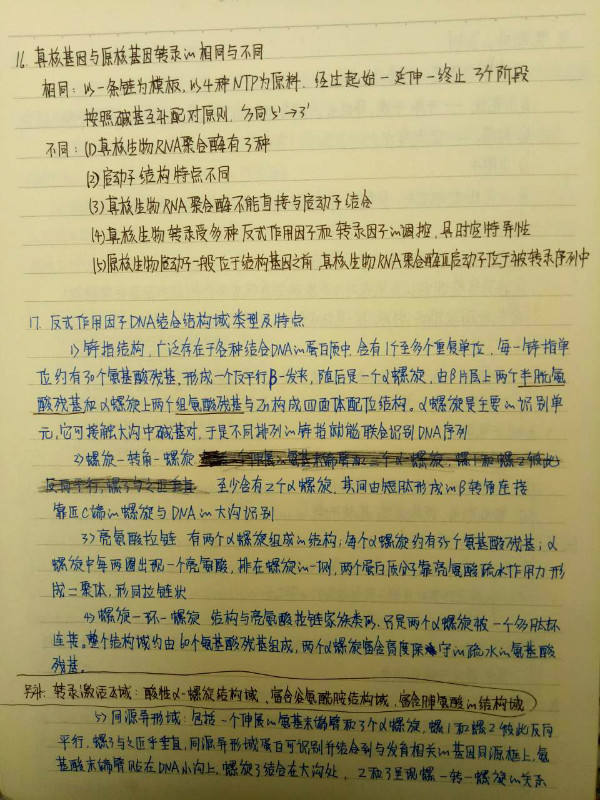 16. 真核基因与原核基因转录的相同与不同
相同：以一条链为模板，以4种NTP为原料，经过起始－延伸－终止 3个阶段
按照碱基互补配对原则，方向5'→3'
不同：(1)真核生物RNA聚合酶有3种
(2)启动子结构特点不同
(3)真核生物RNA聚合酶不能直接与启动子结合
(4)真核生物转录受多种反式作用因子和转录因子的调控，具时空特异性
(5)原核生物启动子一般位于结构基因之前，真核生物RNA聚合酶Ⅲ启动子位于被转录序列中
17. 反式作用因子DNA结合结构域类型及特点
1) 锌指结构，广泛存在于各种结合DNA的蛋白质中，含有1个至多个重复单位，每一锌指单
位约有30个氨基酸残基，形成一个反平行β-发夹，随后是一个α螺旋，由β片层上两个半胱氨
酸残基和α螺旋上两个组氨酸残基与Zn构成四面体配位结构。α螺旋是主要的识别单
元，它可接触大沟中碱基对，于是不同排列的锌指就能联合识别DNA序列
2) 螺旋－转角－螺旋
至少含有2个α螺旋，其间由短肽形成的β转角连接
靠近C端的螺旋与DNA的大沟识别
3) 亮氨酸拉链 有两个α螺旋组成的结构；每个α螺旋约有35个氨基酸残基；α
螺旋中每两圈出现一个亮氨酸，排在螺旋的一侧，两个蛋白质分子靠亮氨酸疏水作用力形
成二聚体，形同拉链状
4) 螺旋－环－螺旋 结构与亮氨酸拉链家族类似，只是两个α螺旋被一个多肽环
连接。整个结构域约由60个氨基酸残基组成，两个α螺旋富含高度保守的疏水的氨基酸
残基。
另外：转录激活区域：酸性α-螺旋结构域、富含谷氨酰胺结构域、富含脯氨酸的结构域
5) 同源异形域：包括一个伸展的氨基末端臂和3个α螺旋，螺1和螺2彼此反向
平行，螺3与之近乎垂直，同源异形域蛋白可识别并结合到与发育相关的基因同源框上，氨
基酸末端臂贴在DNA小沟上，螺旋3结合在大沟处，2和3呈现螺－转－螺旋的关系